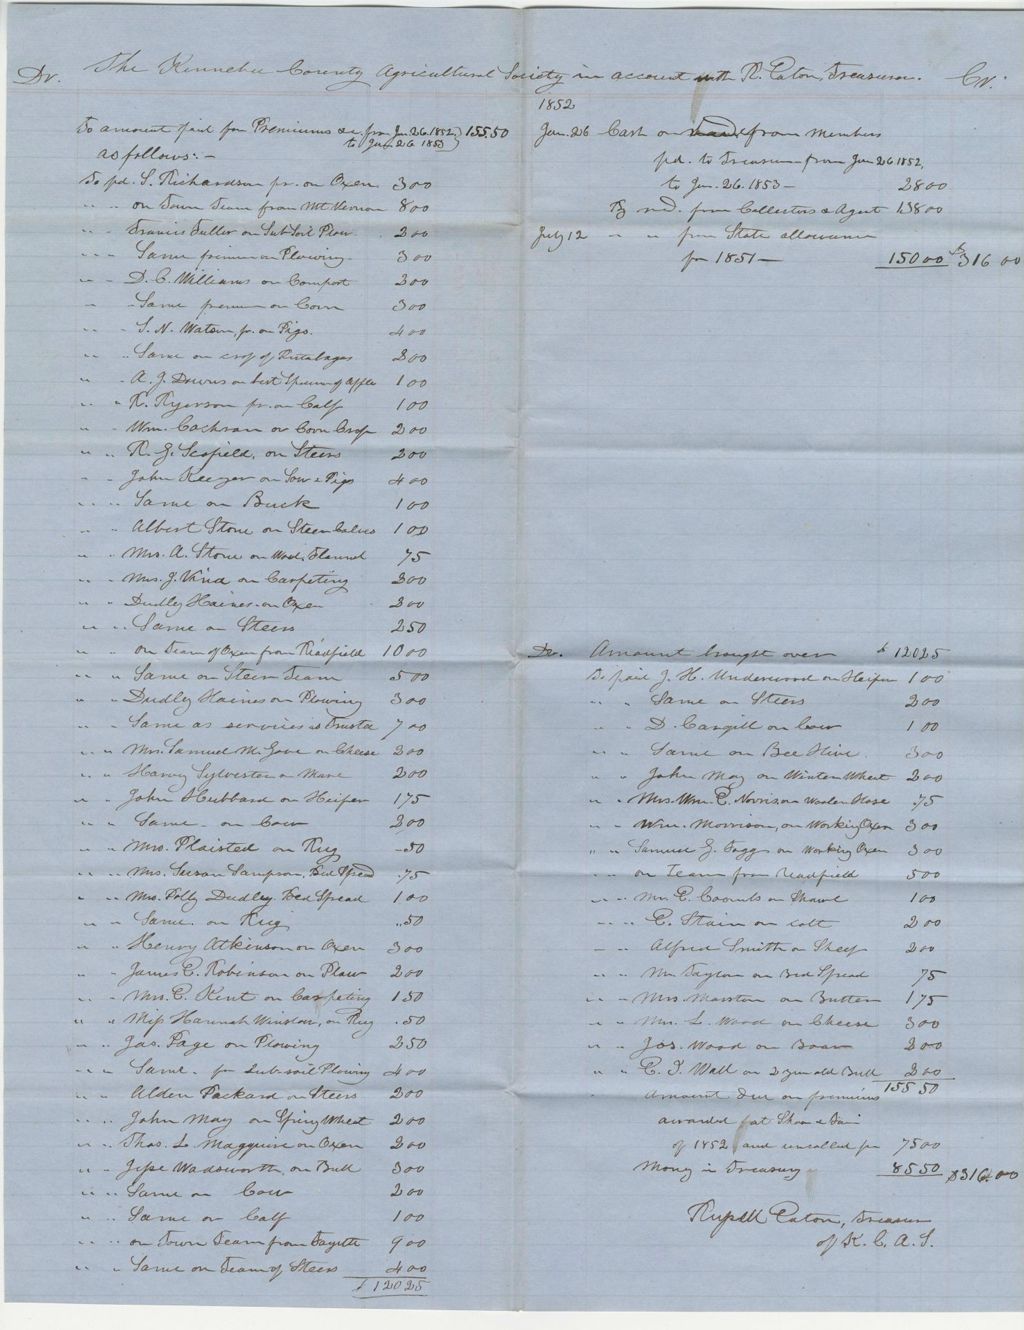 Dr. The Kennebec County Agricultural Society in account with R. Eaton, Treasurer. Cr.
To amount paid for Premiums &c. from Jan. 26. 1852, to Jan. 26 1853 155.50
as follows:-
To pd. S. Richardson pr. on Oxen 3 00
" " on Town Team from Mt Vernon 8 00
" " Francis Fuller on Sub Soil Plow 2 00
" " Same premium on Plowing 3 00
" " D. C. Williams on Compost 3 00
" " Same premium on Corn 3 00
" " S. N. Watson, pr. on Pigs. 4 00
" " Same on crop of Rutabagas 2 00
" " A. J. Downs on best Specimen of Apples 1 00
" " R. Ryerson pr. on Calf 1 00
" " Wm. Cochran on Corn Crop 2 00
" " R. G. Scofield, on Steers 2 00
" " John Keezer on Sow & Pigs 4 00
" " Same on Buck 1 00
" " Albert Stone on Steer Calves 1 00
" " Mrs. A. Stone on Wool. Flannel 75
" " Mrs. J. on Carpeting 3 00
" " Dudley Haines on Oxen 3 00
" " Same on Steers 2 50
" " on Team of Oxen from Readfield 10 00
" " Same on Steer Team 5 00
" " Dudley Haines on Plowing 3 00
" " Same as services as Trustee 7 00
" " Mrs. Samuel M. Gove on Cheese 3 00
" " Harvey Sylvester on Mare 2 00
" " John Hubbard on Heifer 1 75
" " Same on Cow 3 00
" " Mrs. Plaisted on Rug .50
" " Mrs. Susan Sampson, Bed Spread .75
" " Mrs. Polly Dudley, Bed Spread 1 00
" " Same on Rug .50
" " Henry Atkinson on Oxen 3 00
" " James C. Robinson on Plow 2 00
" " Mrs. C. Kent on Carpeting 1 50
" " Miss Hannah Winslow, on Rug .50
" " Jas. Page on Plowing 2 50
" " Same for Sub-soil Plowing 4 00
" " Alden Packard on Steers 2 00
" " John May on Spring Wheat 2 00
" " Thos. L. Magquire on Oxen 2 00
" " Jesse Wadsworth, on Bull 3 00
" " Same on Cow 2 00
" " Same on Calf 1 00
" " on Town Team from Fayette 9 00
" " Same on Team of Steers 4 00
$ 120 25
1852
Jan. 26 Cash on hand from members
pd. to Treasurer from Jan 26 1852,
to Jan. 26. 1853 - 28 00
By recd. from Collectors & Agent 138 00
July 12 " " from State allowance
for 1851 - 150 00 $316 00
Dr. Amount brought over $ 120 25
To paid J. H. Underwood on Heifer 1 00
" " Same on Steers 2 00
" " D. Cargill on Cow 1 00
" " Same on Bee Hive 3 00
" " John May on Winter Wheat 2 00
" " Mrs. Wm. C. Norris on Woolen Hose .75
" " Wm. Morrison, on Working Oxen 3 00
" " Samuel G. Foggs on Working Oxen 3 00
" " on Team from Readfield 5 00
" " Mrs C. Coombs on Shawl 1 00
" " C. Stain on colt 2 00
" " Alfred Smith on Sheep 2 00
" " Mrs Taylor on Bed Spread 75
" " Mrs. Marston on Butter 1 75
" " Mrs. L. Wood on Cheese 3 00
" " Jos. Wood on Boar 2 00
" " C. T. Wall on 2 year old Bull 2 00
155 50
Amount due on premiums
awarded at Show & Fair
of 1852 and uncalled for 75 00
Money in Treasury 85 50 $316.00
Eaton, Treasurer
of K. C. A. S.